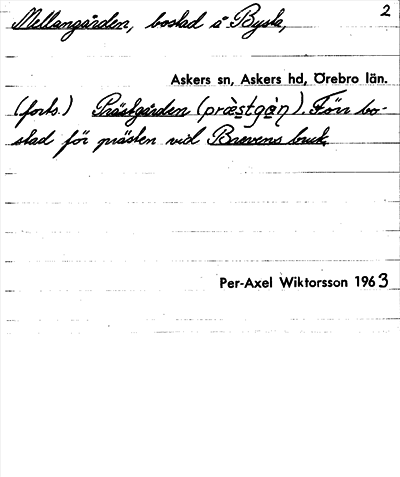 Mellangården, bostad å Bysta, 2
Askers sn, Askers hd, Örebro län.
(forts.) Prästgården (præ̀stgà̱ṇ). Förr bo-
stad för prästen vid Brevens bruk.
Per-Axel Wiktorsson 1963